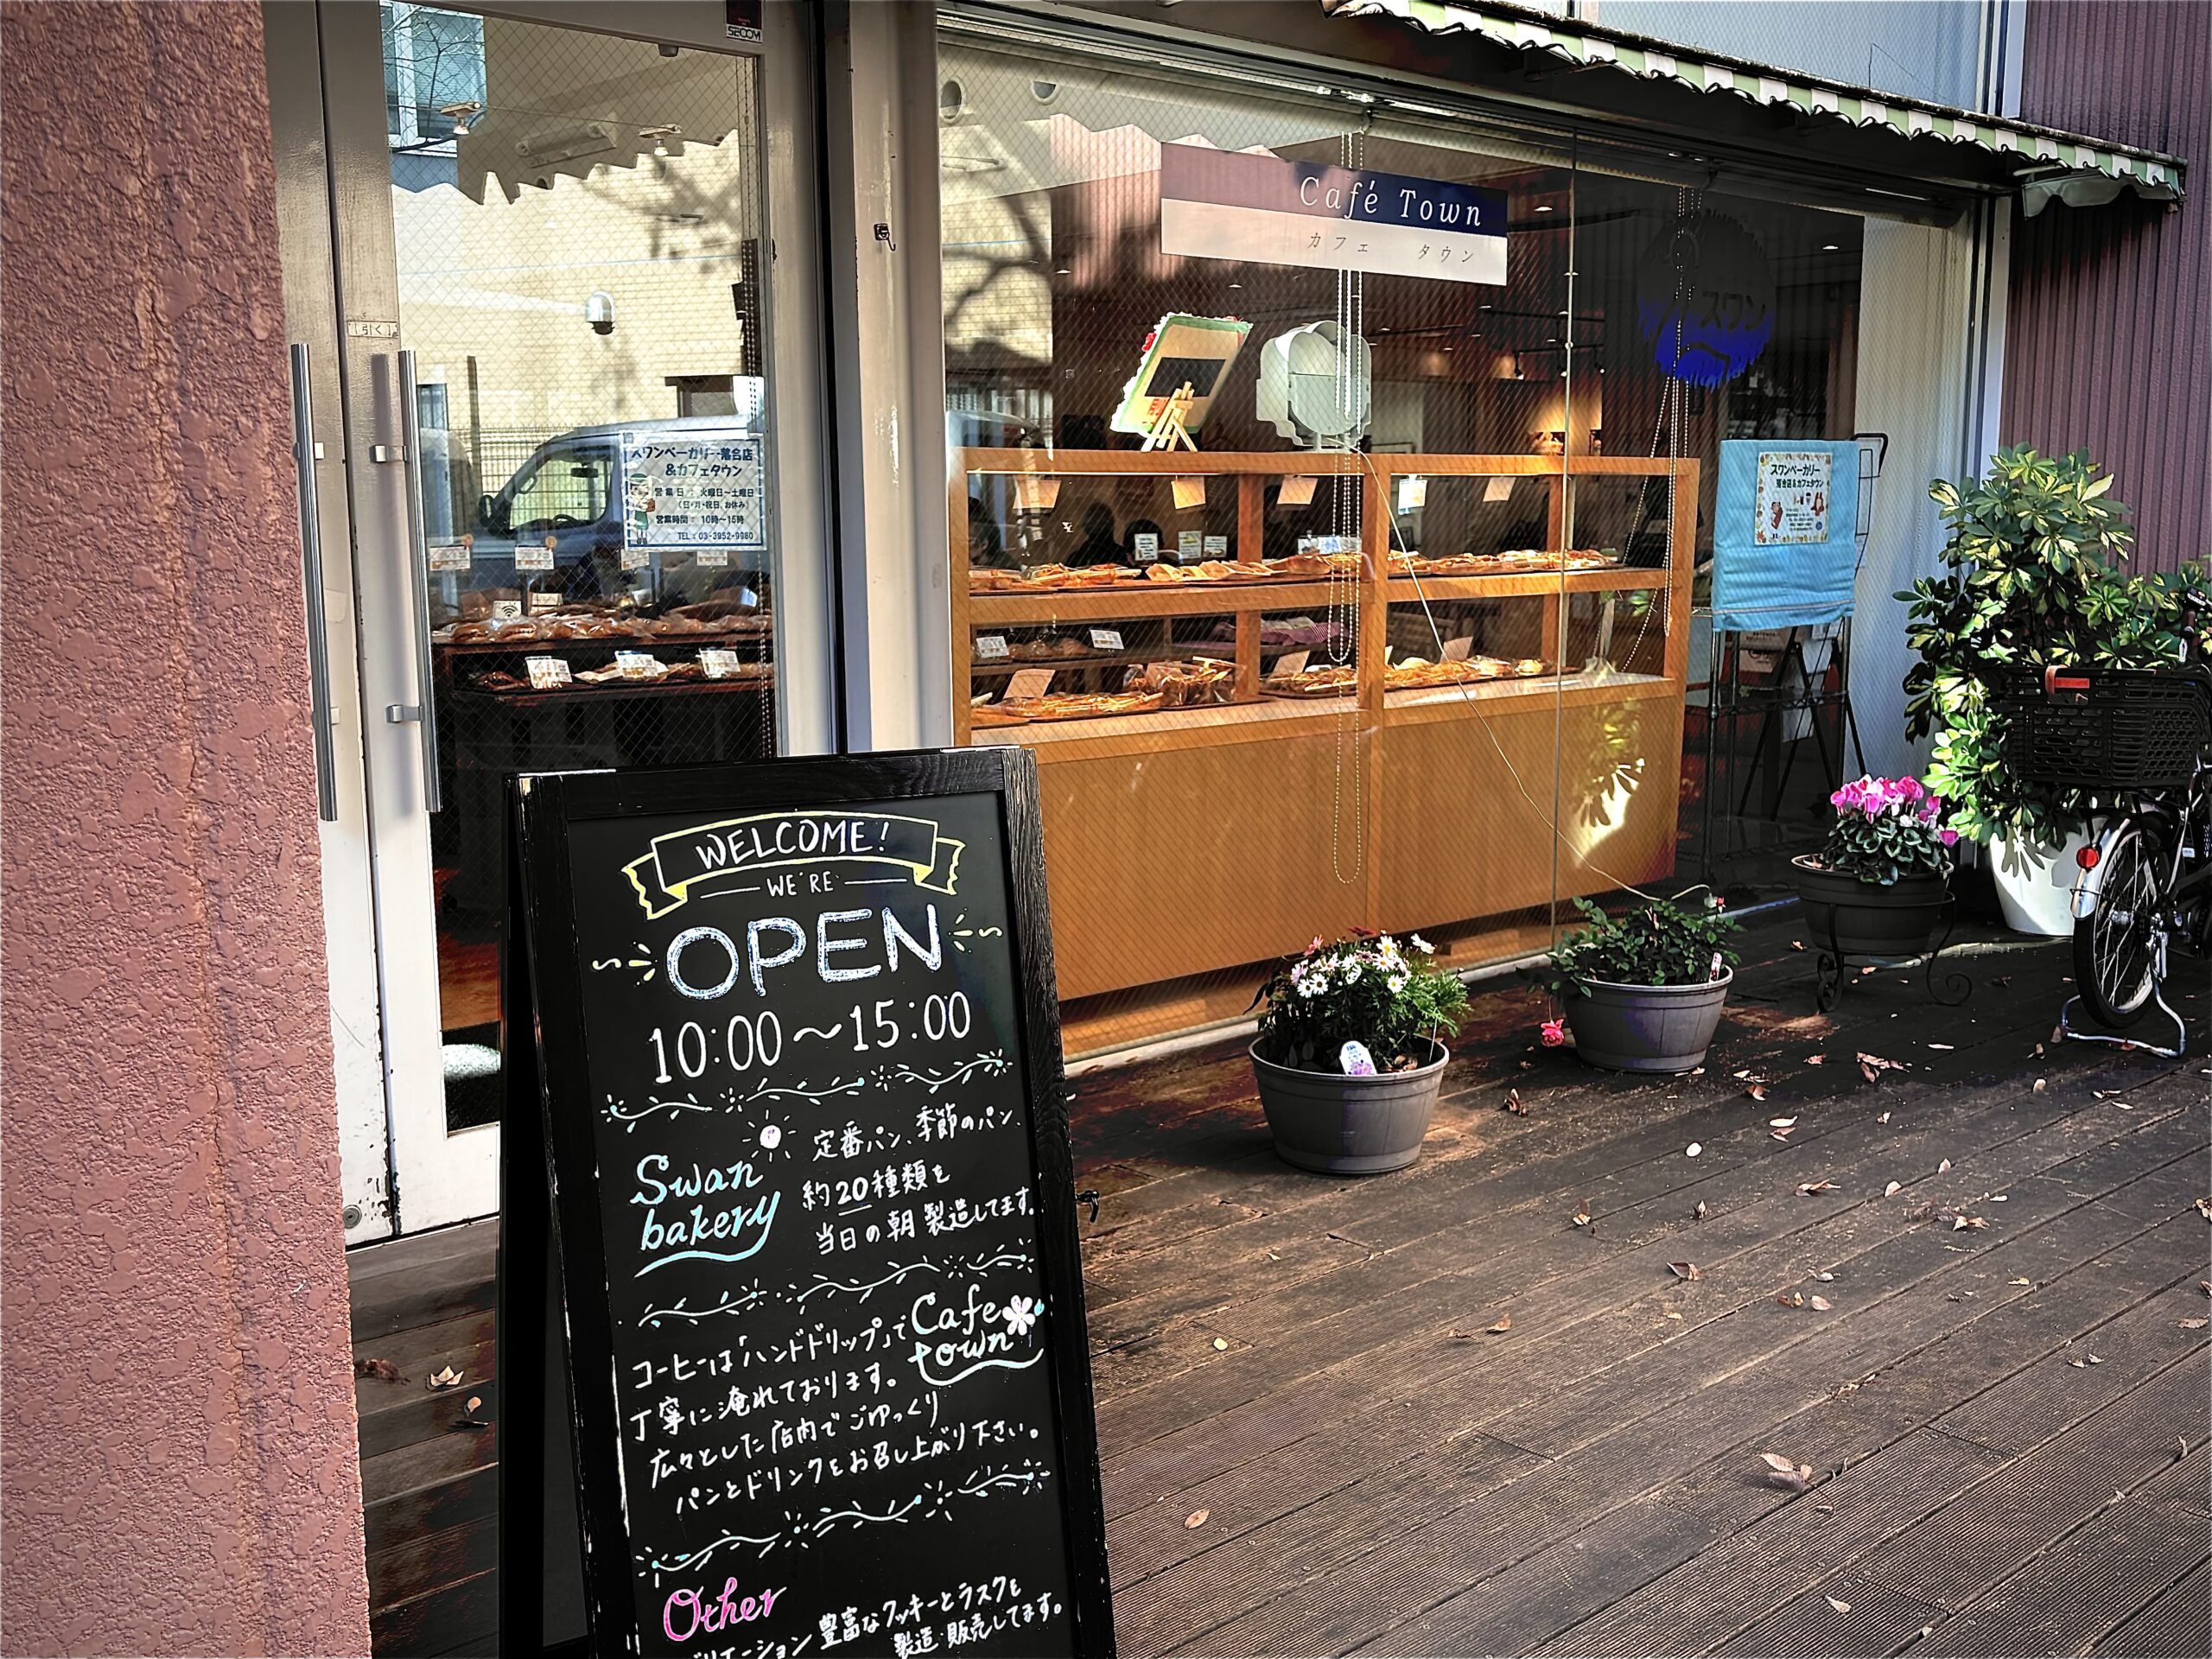 SECOM
引く
スワンベーカリー落合店
&カフェタウン
営業日: 火曜日~土曜日
(日・月・祝日、お休み)
営業時間: 10時~15時
TEL: 03-3952-9980
Café Town
カフェ タウン
スワン
スワンベーカリー
落合店&カフェタウン
WELCOME!
WE'RE
OPEN
10:00~15:00
Swan
bakery
定番パン、季節のパン、
約20種類を
当日の朝 製造してます。
Cafe
town
コーヒーは「ハンドドリップ」で
丁寧に淹れております。
広々とした店内でごゆっくり
パンとドリンクをお召し上がり下さい。
Other
バリエーション豊富なクッキーとラスクを
製造・販売してます。